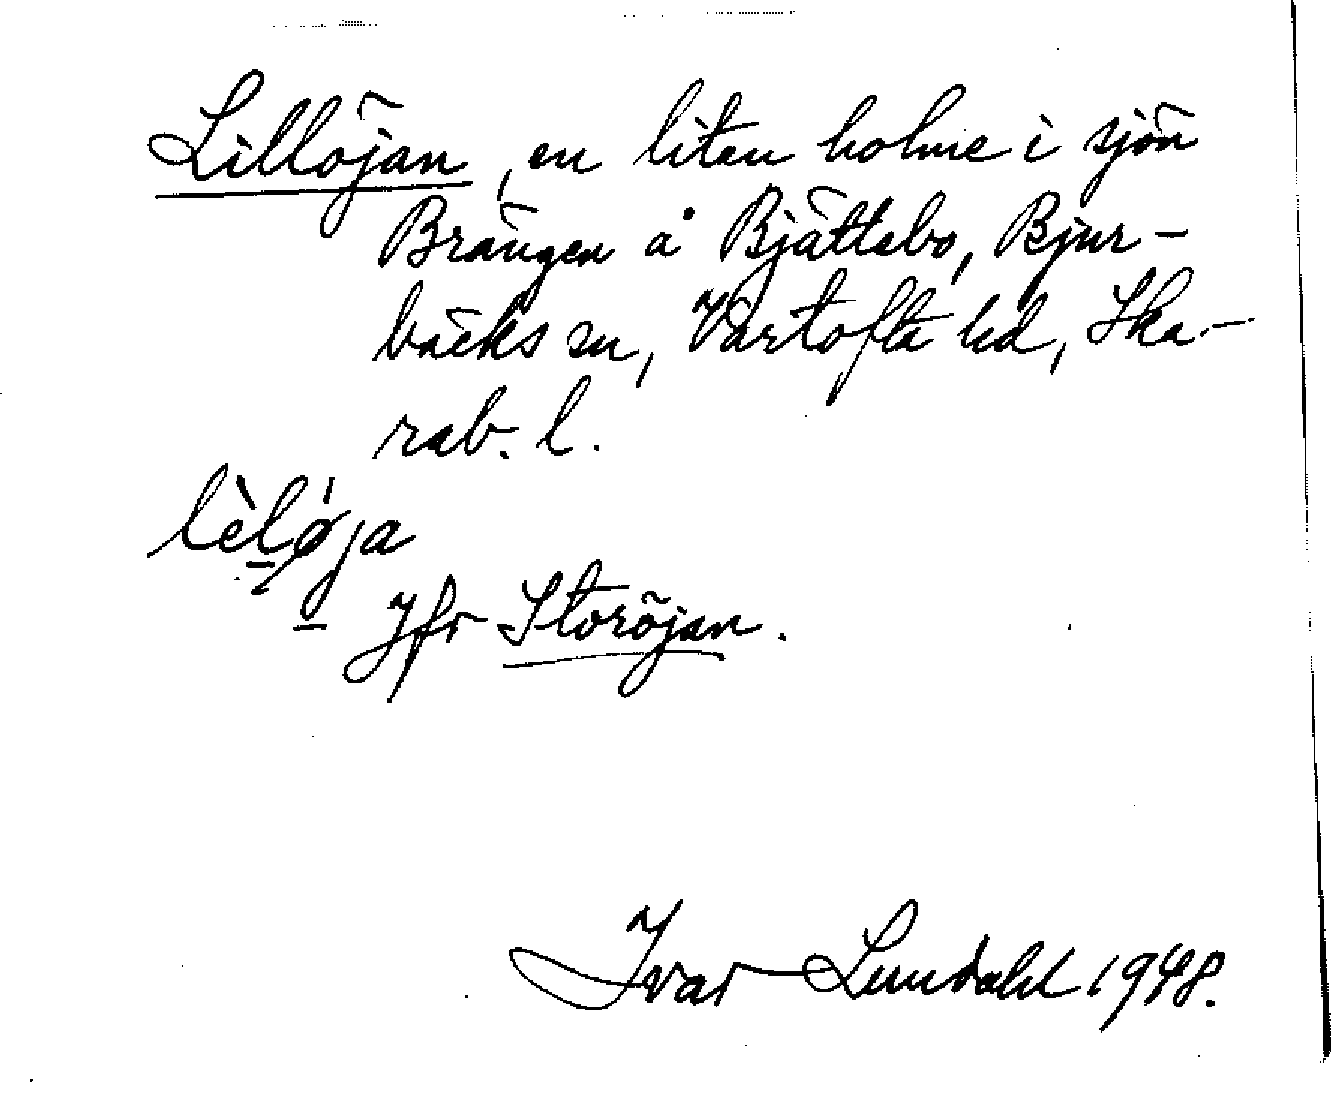 Lillöjan, en liten holme i sjön
Brängen å Bjättebo, Bjur-
bäcks sn, Vartofta hd, Ska-
rab. l.
lèløja
Jfr Storöjan.
Ivar Lundahl 1948.